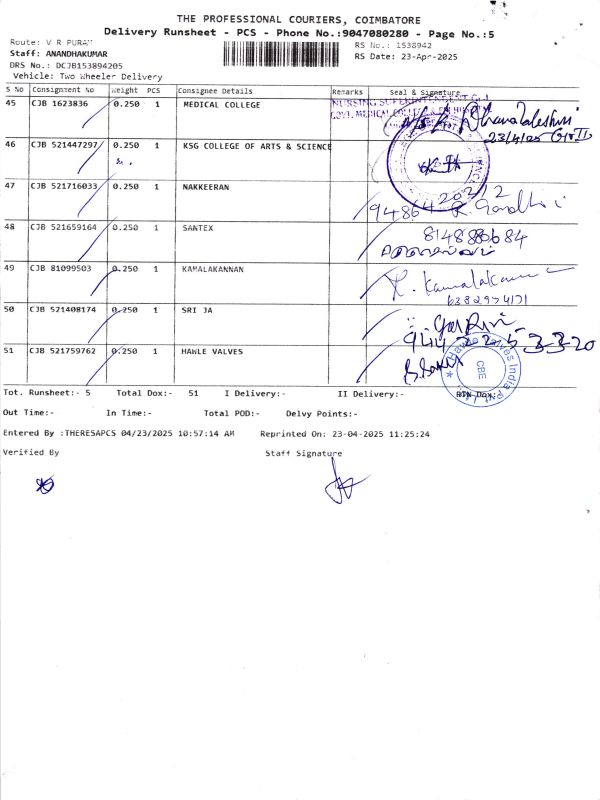 THE PROFESSIONAL COURIERS, COIMBATORE
Delivery Runsheet - PCS - Phone No.:9047080280 - Page No.:5
Route: V R PURAM
RS No.: 1538942
Staff: ANANDHAKUMAR
RS Date: 23-Apr-2025
DRS No.: DCJB153894205
Vehicle: Two Wheeler Delivery
S No Consignment No Weight PCS Consignee Details Remarks Seal & Signature
45 CJB 1623836 0.250 1 MEDICAL COLLEGE
NURSING SUPERINTENDENT
GOVT. MEDICAL COLLEGE
23/4/25 Gr II
46 CJB 521447297 0.250 1 KSG COLLEGE OF ARTS & SCIENCE
47 CJB 521716033 0.250 1 NAKKEERAN
R. Gandhi
48 CJB 521659164 0.250 1 SANTEX
49 CJB 81099503 0.250 1 KAMALAKANNAN
50 CJB 521408174 0.250 1 SRI JA
51 CJB 521759762 0.250 1 HAWLE VALVES
Hawle Valves India Pvt Ltd
CBE
Tot. Runsheet:- 5 Total Dox:- 51 I Delivery:- II Delivery:- RTN Dox:-
Out Time:- In Time:- Total POD:- Delvy Points:-
Entered By :THERESAPCS 04/23/2025 10:57:14 AM Reprinted On: 23-04-2025 11:25:24
Verified By Staff Signature